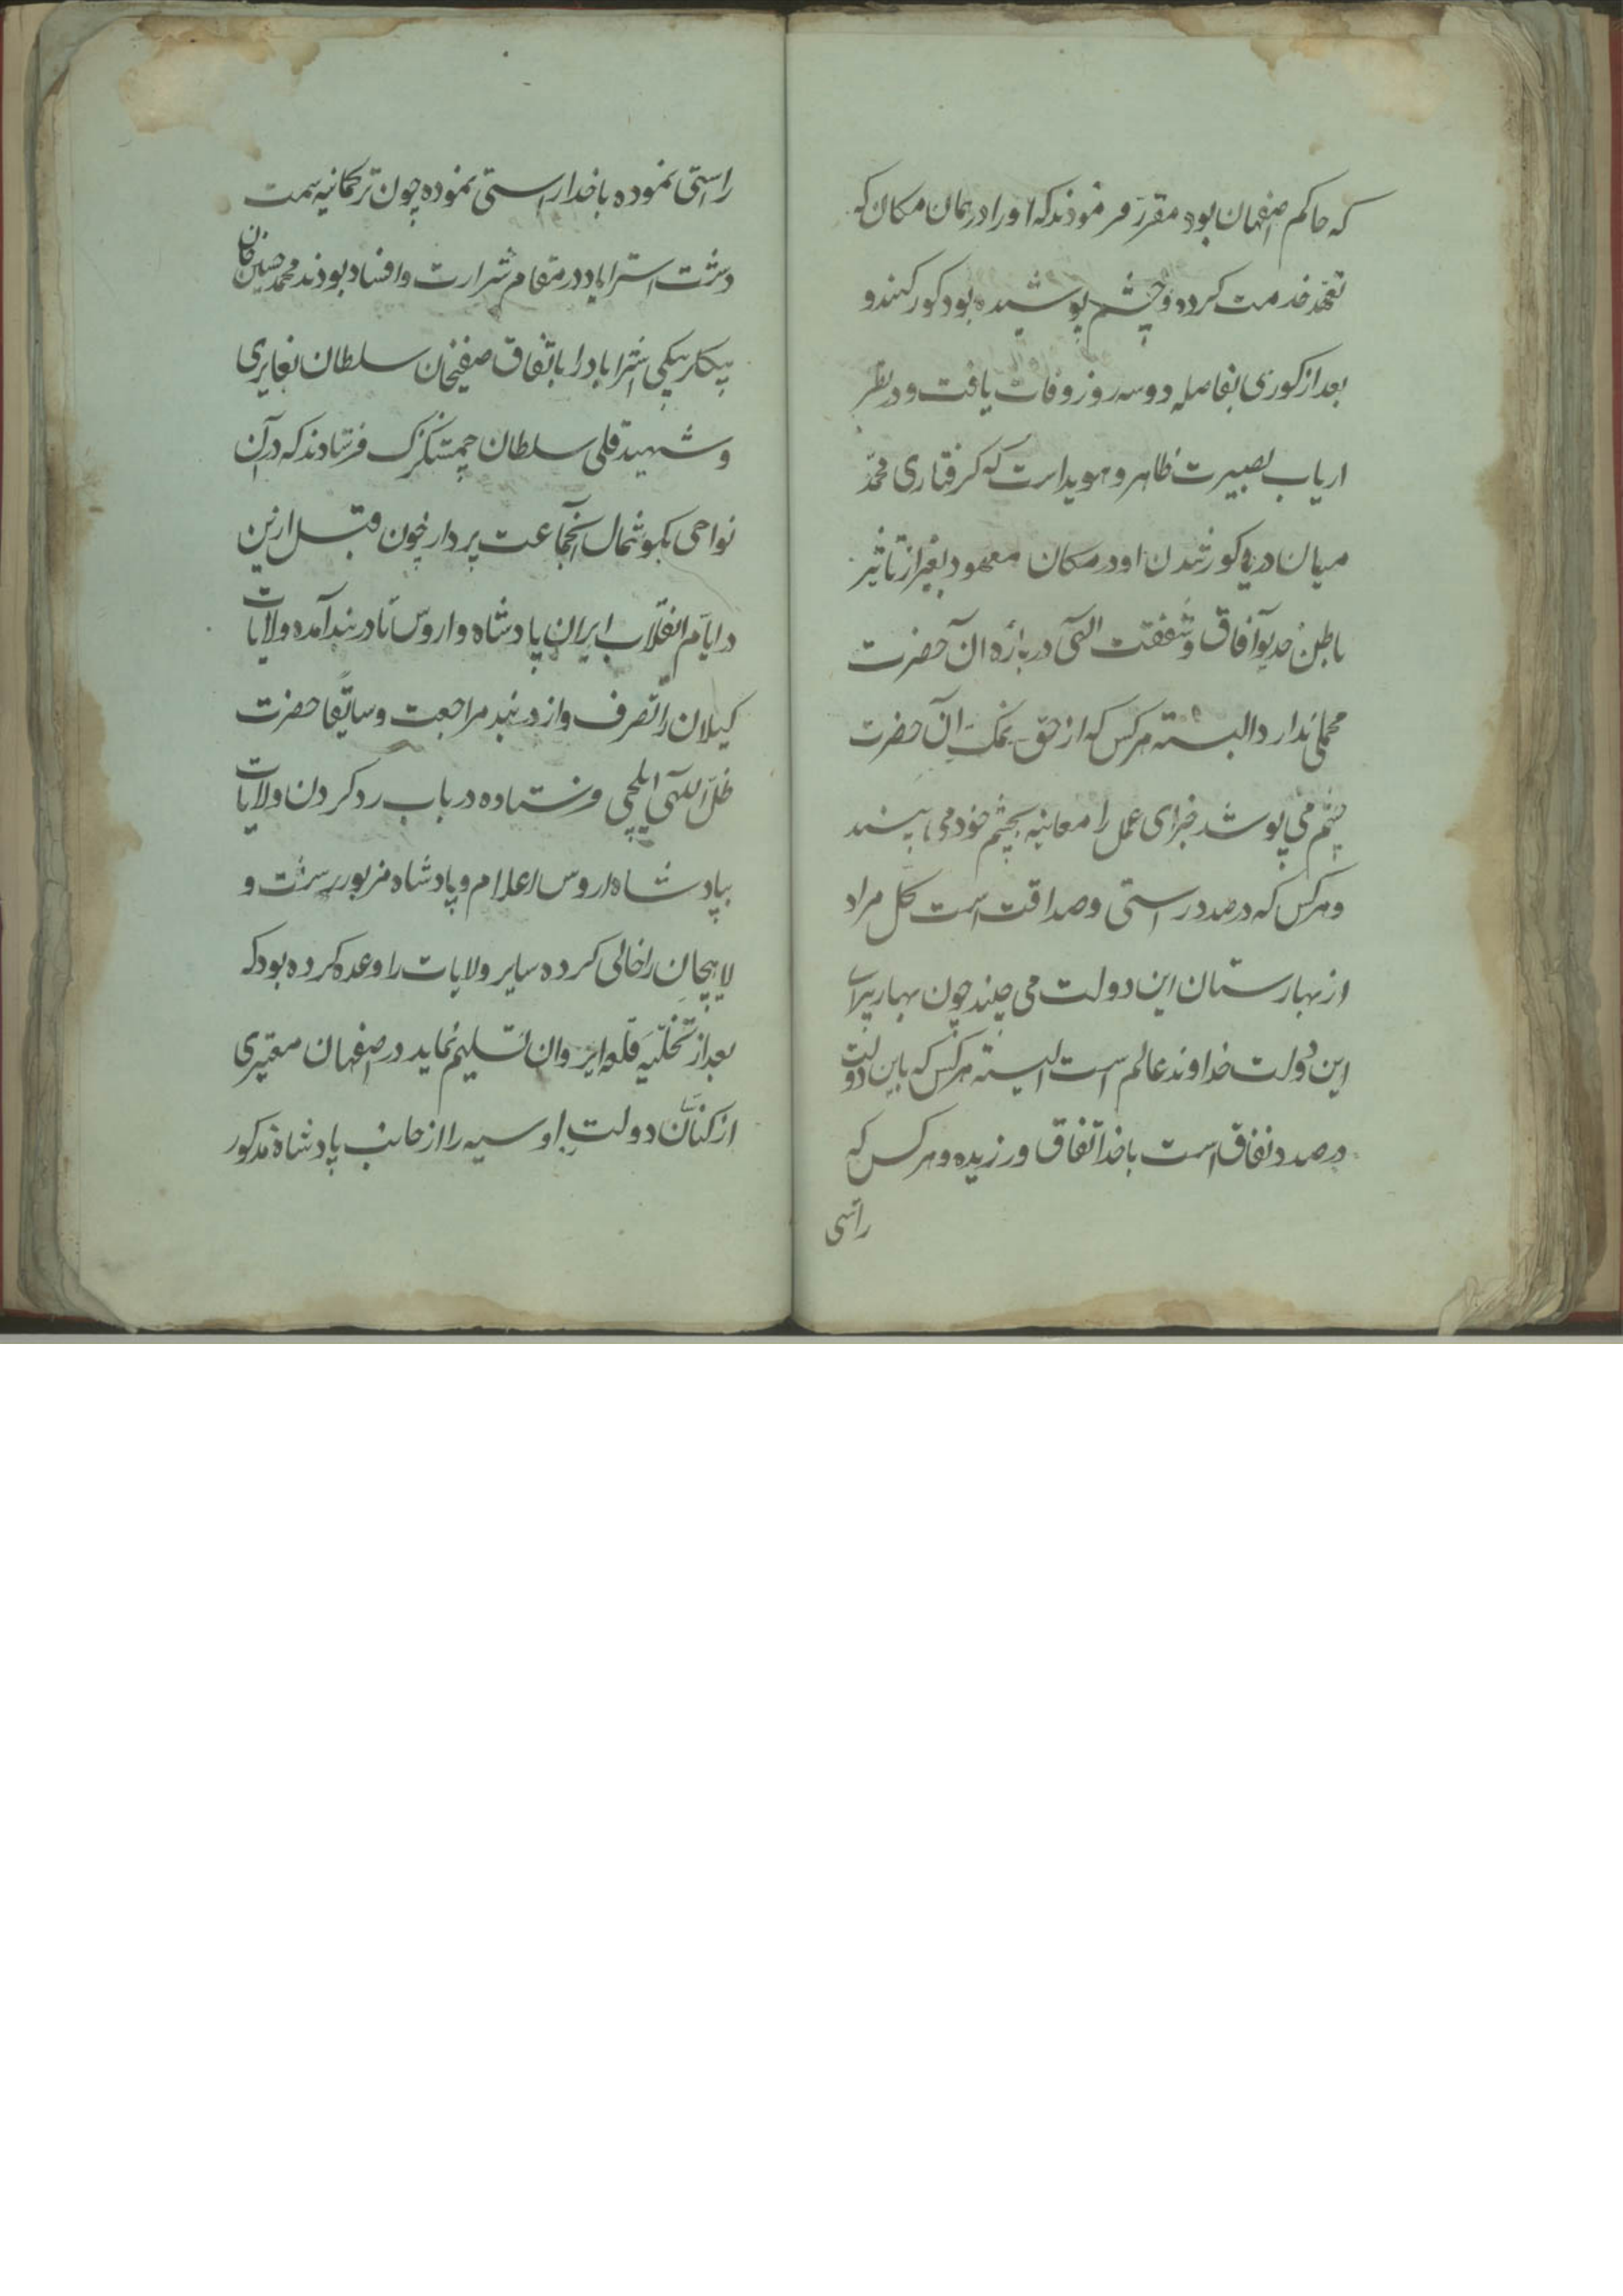 که حاکم اصفهان بود مقرر فرمودند که او را در همان مکان که
تعهد خدمت کرده و چشم پوشیده بود کور کنند و
بعد از کوری بفاصله دو سه روز وفات یافت و در نظر
ارباب بصیرت ظاهر و هویداست که کرفتاری محمد
میان دریا و کور شدن او در مکان معهود بغیر از تاثیر
باطن خدیو آفاق و شفقت الهی درباره آن حضرت
محملی ندارد البسته هر کس که از حق نمک آن حضرت
چشم می پوشد جزای عمل را معاینه بچشم خود می بیند
و هر کس که در صدد راستی و صداقت است کل مراد
از بهارستان این دولت می چیند چون بهار پیرای
این دولت خداوند عالم است البسته هر کس که باین دولت
در صدد نفاق است با خدا نفاق ورزیده و هر کس که
راستی
راستی نموده با خدا راستی نموده چون ترکمانیه سمت
دشت استراباد در مقام شرارت و افساد بودند محمد حسین خان
بیکلربیکی استراباد را باتفاق صفیخان سلطان بغایری
و شهیدقلی سلطان چمشکزک فرستادند که در آن
نواحی بکوشمال آنجماعت پردازد چون قبل ازین
در ایام انقلاب ایران پادشاه و اروس تا دربند آمده ولایات
کیلان را تصرف و از دربند مراجعت و سابقا حضرت
ظل اللهی ایلچی فرستاده در باب رد کردن ولایات
بپادشاه اروس اعلام و پادشاه مزبور رشت و
لاهیجان را خالی کرده سایر ولایات را وعده کرده بود که
بعد از تخلیه قلعه ایروان تسلیم نماید در اصفهان معتبری
از کنان دولت اوسیه را از جانب پادشاه مذکور